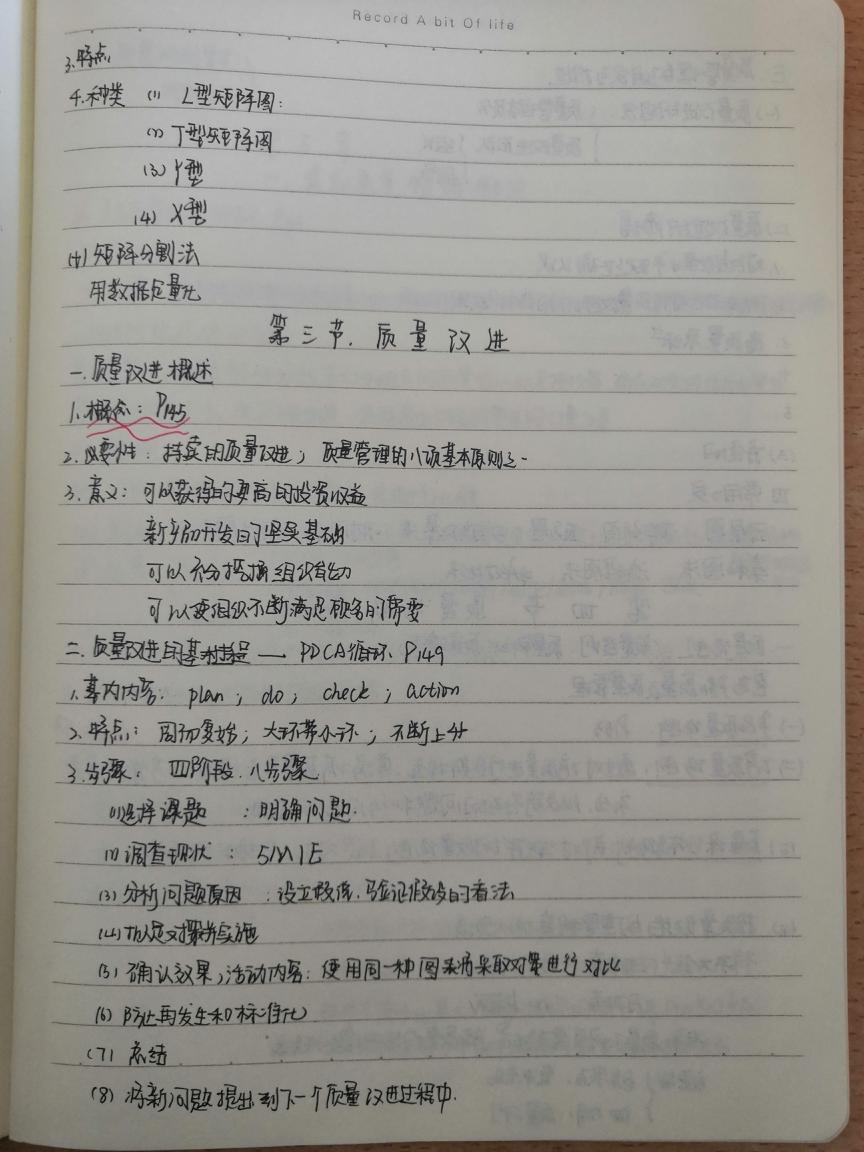 Record A bit Of life
3.特点
4.种类 (1) L型矩阵图:
(2) T型矩阵图
(3) Y型
(4) X型
(4) 矩阵分割法
用数据定量化
第三节.质量改进
一.质量改进概述
1.概念: P145
2.必要性: 持续的质量改进; 质量管理的八项基本原则之一
3.意义: 可以获得的更高的投资收益
新产品开发的坚实基础
可以充分挖掘组织潜力
可以使组织不断满足顾客的需要
二.质量改进的基本过程 — PDCA循环 P149
1.基内内容: plan ; do ; check ; action
2.特点: 周而复始; 大环带小环; 不断上升
3.步骤: 四阶段.八步骤.
(1)选择课题 : 明确问题.
(2)调查现状 : 5M1E
(3) 分析问题原因 : 设立假设.验证假设的看法
(4)拟定对策并实施
(5) 确认效果;活动内容: 使用同一种图表将采取对策进行对比
(6) 防止再发生和标准化
(7) 总结
(8) 将新问题提出到下一个质量改进过程中.